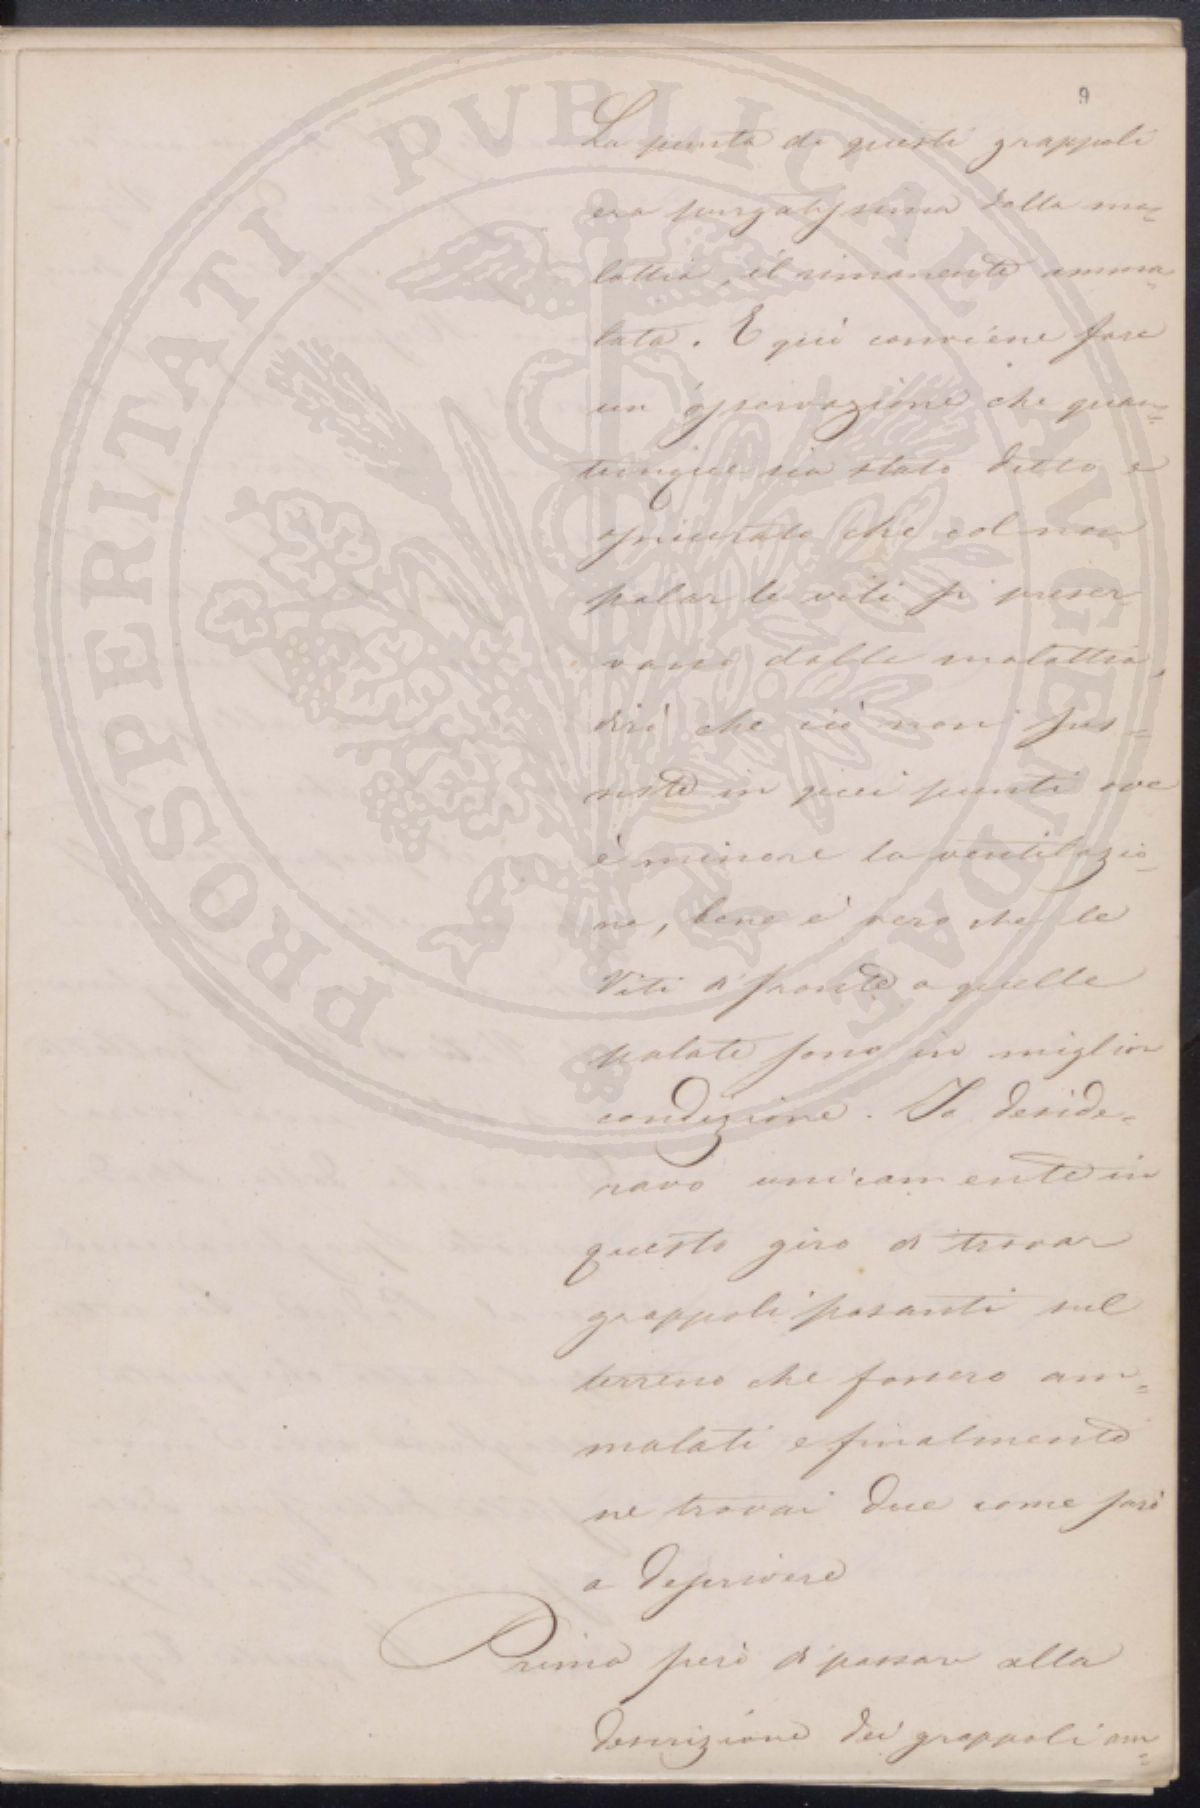 9
La punta di questi grappoli
era purgatissima dalla ma=
lattia, il rimanente amma=
lata. E quì conviene fare
un osservazione che quan=
tunque sia stato detto e
assicurato che col non
palar le viti si preser=
vano dalla malattia,
dirò che ciò non sus=
siste in quei punti ove
è minore la ventilazio=
ne, bene è vero che le
Viti di fronte a quelle
palate sono in miglior
condizione. Io deside=
ravo unicamente in
questo giro di trovar
grappoli posanti sul
terreno che fossero am=
malati e finalmente
ne trovai due come farò
a descrivere
Prima però di passare alla
descrizione dei grappoli am=
PROSPERITATI PVBLICAE AVGENDAE